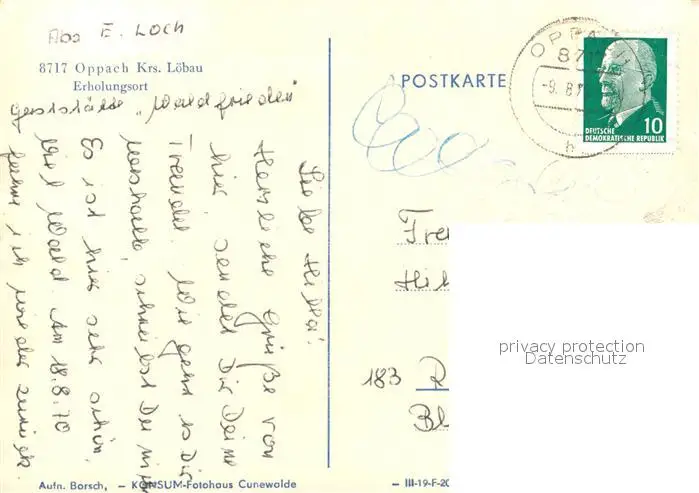 Abs E. LOCH
8717 Oppach Krs. Löbau
Erholungsort
Gaststätte „Waldfrieden"
Liebe Hilla!
Herzliche Grüße von
hier sendet Dir Deine
Traudel. Wie geht es Dir
weshalb schreibst Du nicht
Es ist hier sehr schön,
viel Wald. Am 18.8.70
fahre ich wieder zurück.
Aufn. Borsch, – KONSUM-Fotohaus Cunewalde
POSTKARTE
OPPACH
8717
-9. 8.7
h
10
DEUTSCHE
DEMOKRATISCHE REPUBLIK
183
Bl
– III-19-F-20
privacy protection
Datenschutz